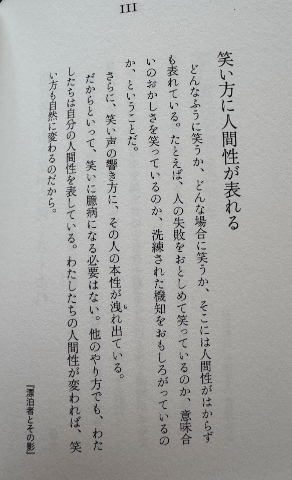 111
笑い方に人間性が表れる
どんなふうに笑うか、どんな場合に笑うか、そこには人間性がはからず
も表れている。たとえば、人の失敗をおとしめて笑っているのか、意味合
いのおかしさを笑っているのか、洗練された機知をおもしろがっているの
か、ということだ。
さらに、笑い声の響き方に、その人の本性が洩れ出ている。
だからといって、笑いに臆病になる必要はない。他のやり方でも、わた
したちは自分の人間性を表している。わたしたちの人間性が変われば、笑
い方も自然に変わるのだから。
『漂泊者とその影』